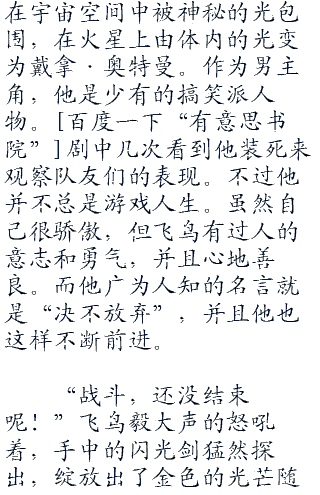 在宇宙空间中被神秘的光包
围，在火星上由体内的光变
为戴拿·奥特曼。作为男主
角，他是少有的搞笑派人
物。[百度一下“有意思书
院”]剧中几次看到他装死来
观察队友们的表现。不过他
并不总是游戏人生。虽然自
己很骄傲，但飞鸟有过人的
意志和勇气，并且心地善
良。而他广为人知的名言就
是“决不放弃”，并且他也
这样不断前进。
“战斗，还没结束
呢！”飞鸟毅大声的怒吼
着，手中的闪光剑猛然探
出，绽放出了金色的光芒随